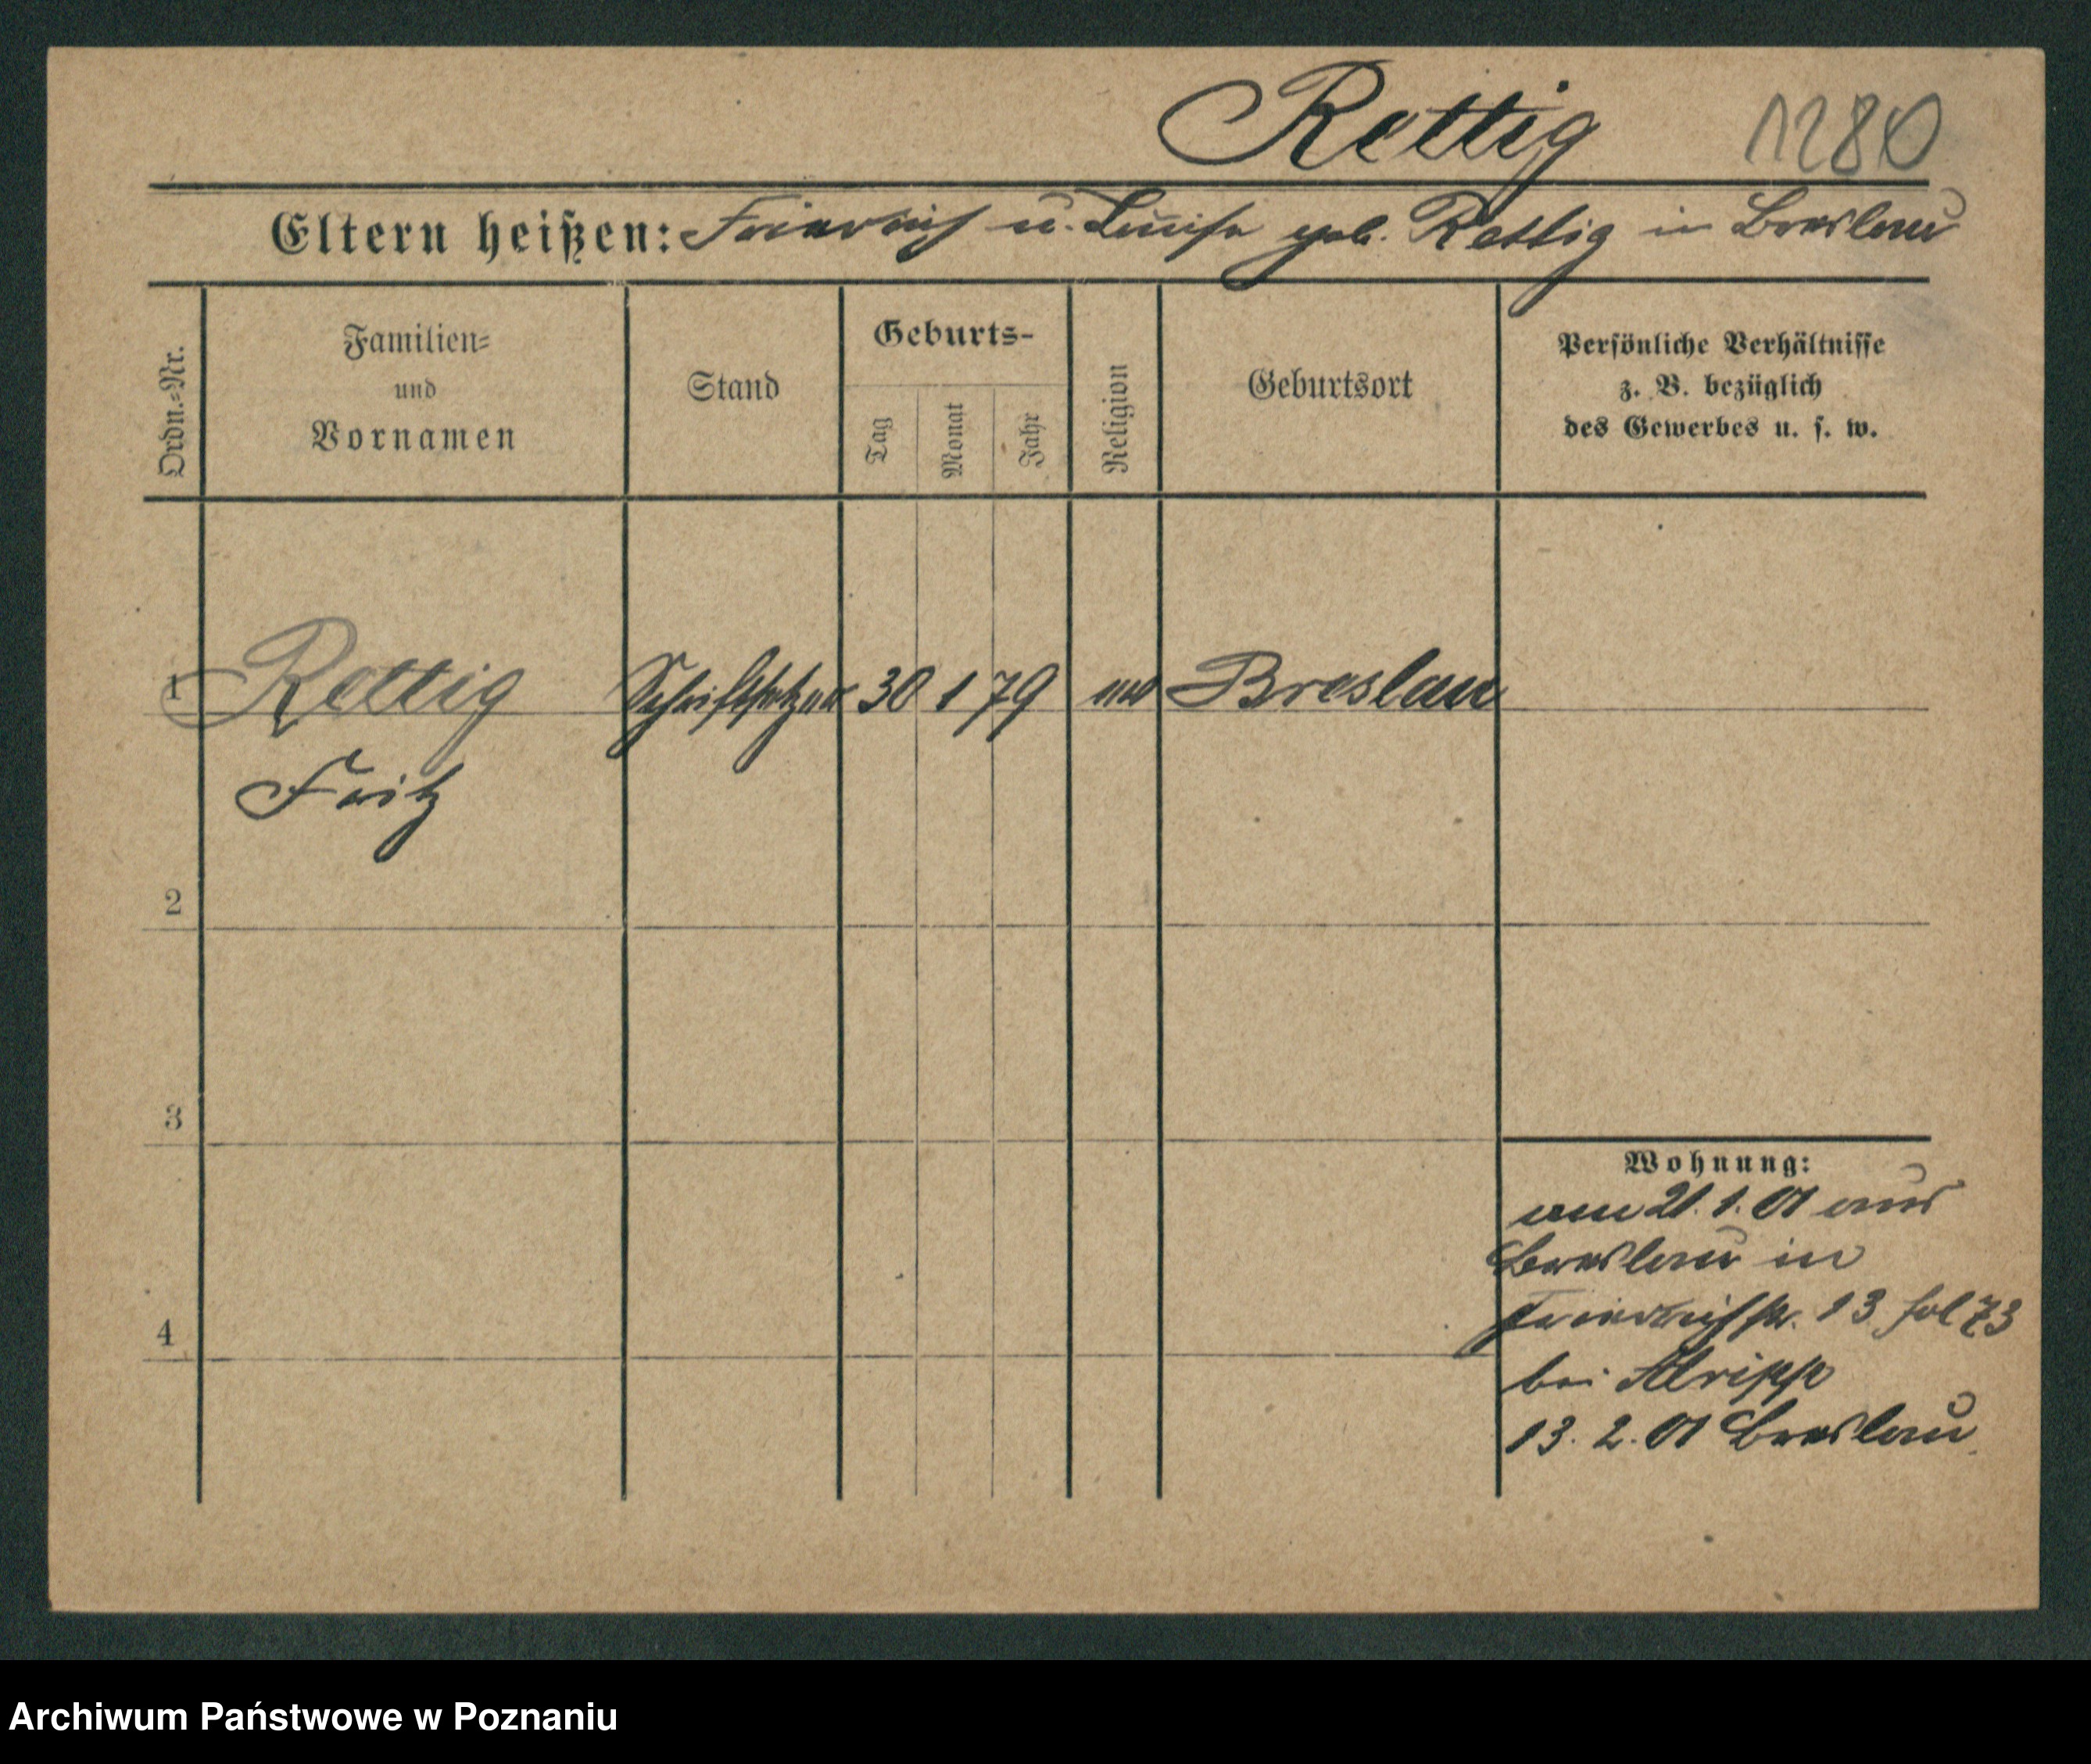 Rettig 1280
Eltern heißen: Friedrich u. Luise geb. Rettig in Breslau
Ordn.-Nr.
Familien-
und
Vornamen
Stand
Geburts-
Tag
Monat
Jahr
Religion
Geburtsort
Persönliche Verhältnisse
z. B. bezüglich
des Gewerbes u. s. w.
1 Rettig Schriftsetzer 30 1 79 Breslau
Fritz
2
3
4
Wohnung:
am 21. 1. 01 aus
Breslau in
Friedrichstr. 13 fol 73
bei
13. 2. 01 Breslau
Archiwum Państwowe w Poznaniu